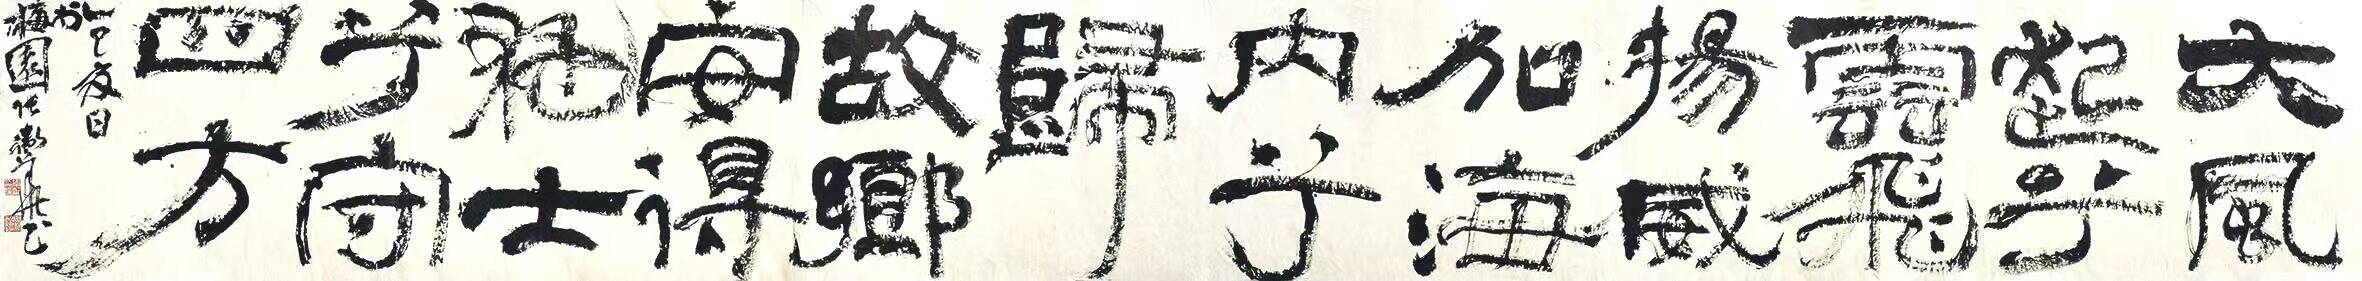 大風
起兮
雲飛
揚威
加海
內兮
歸
故鄉
安得
猛士
兮守
四方
乙巳夏日
於梅園